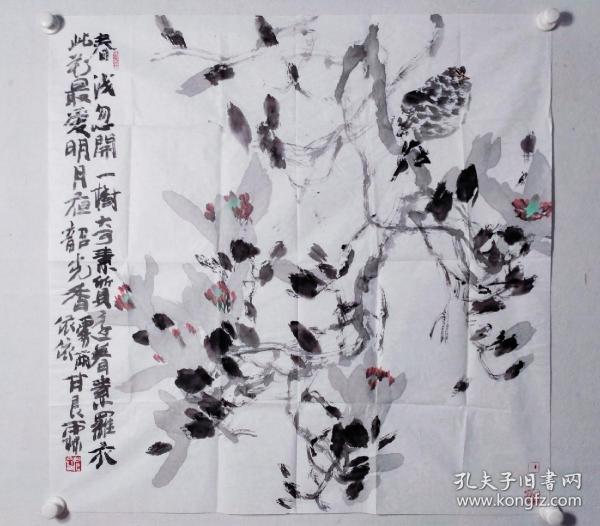 春浅忽開一樹奇素質還着素羅衣
此花最愛明月夜韶光香霧兩
依依 甘良霖
孔夫子旧书网
www.kongfz.com